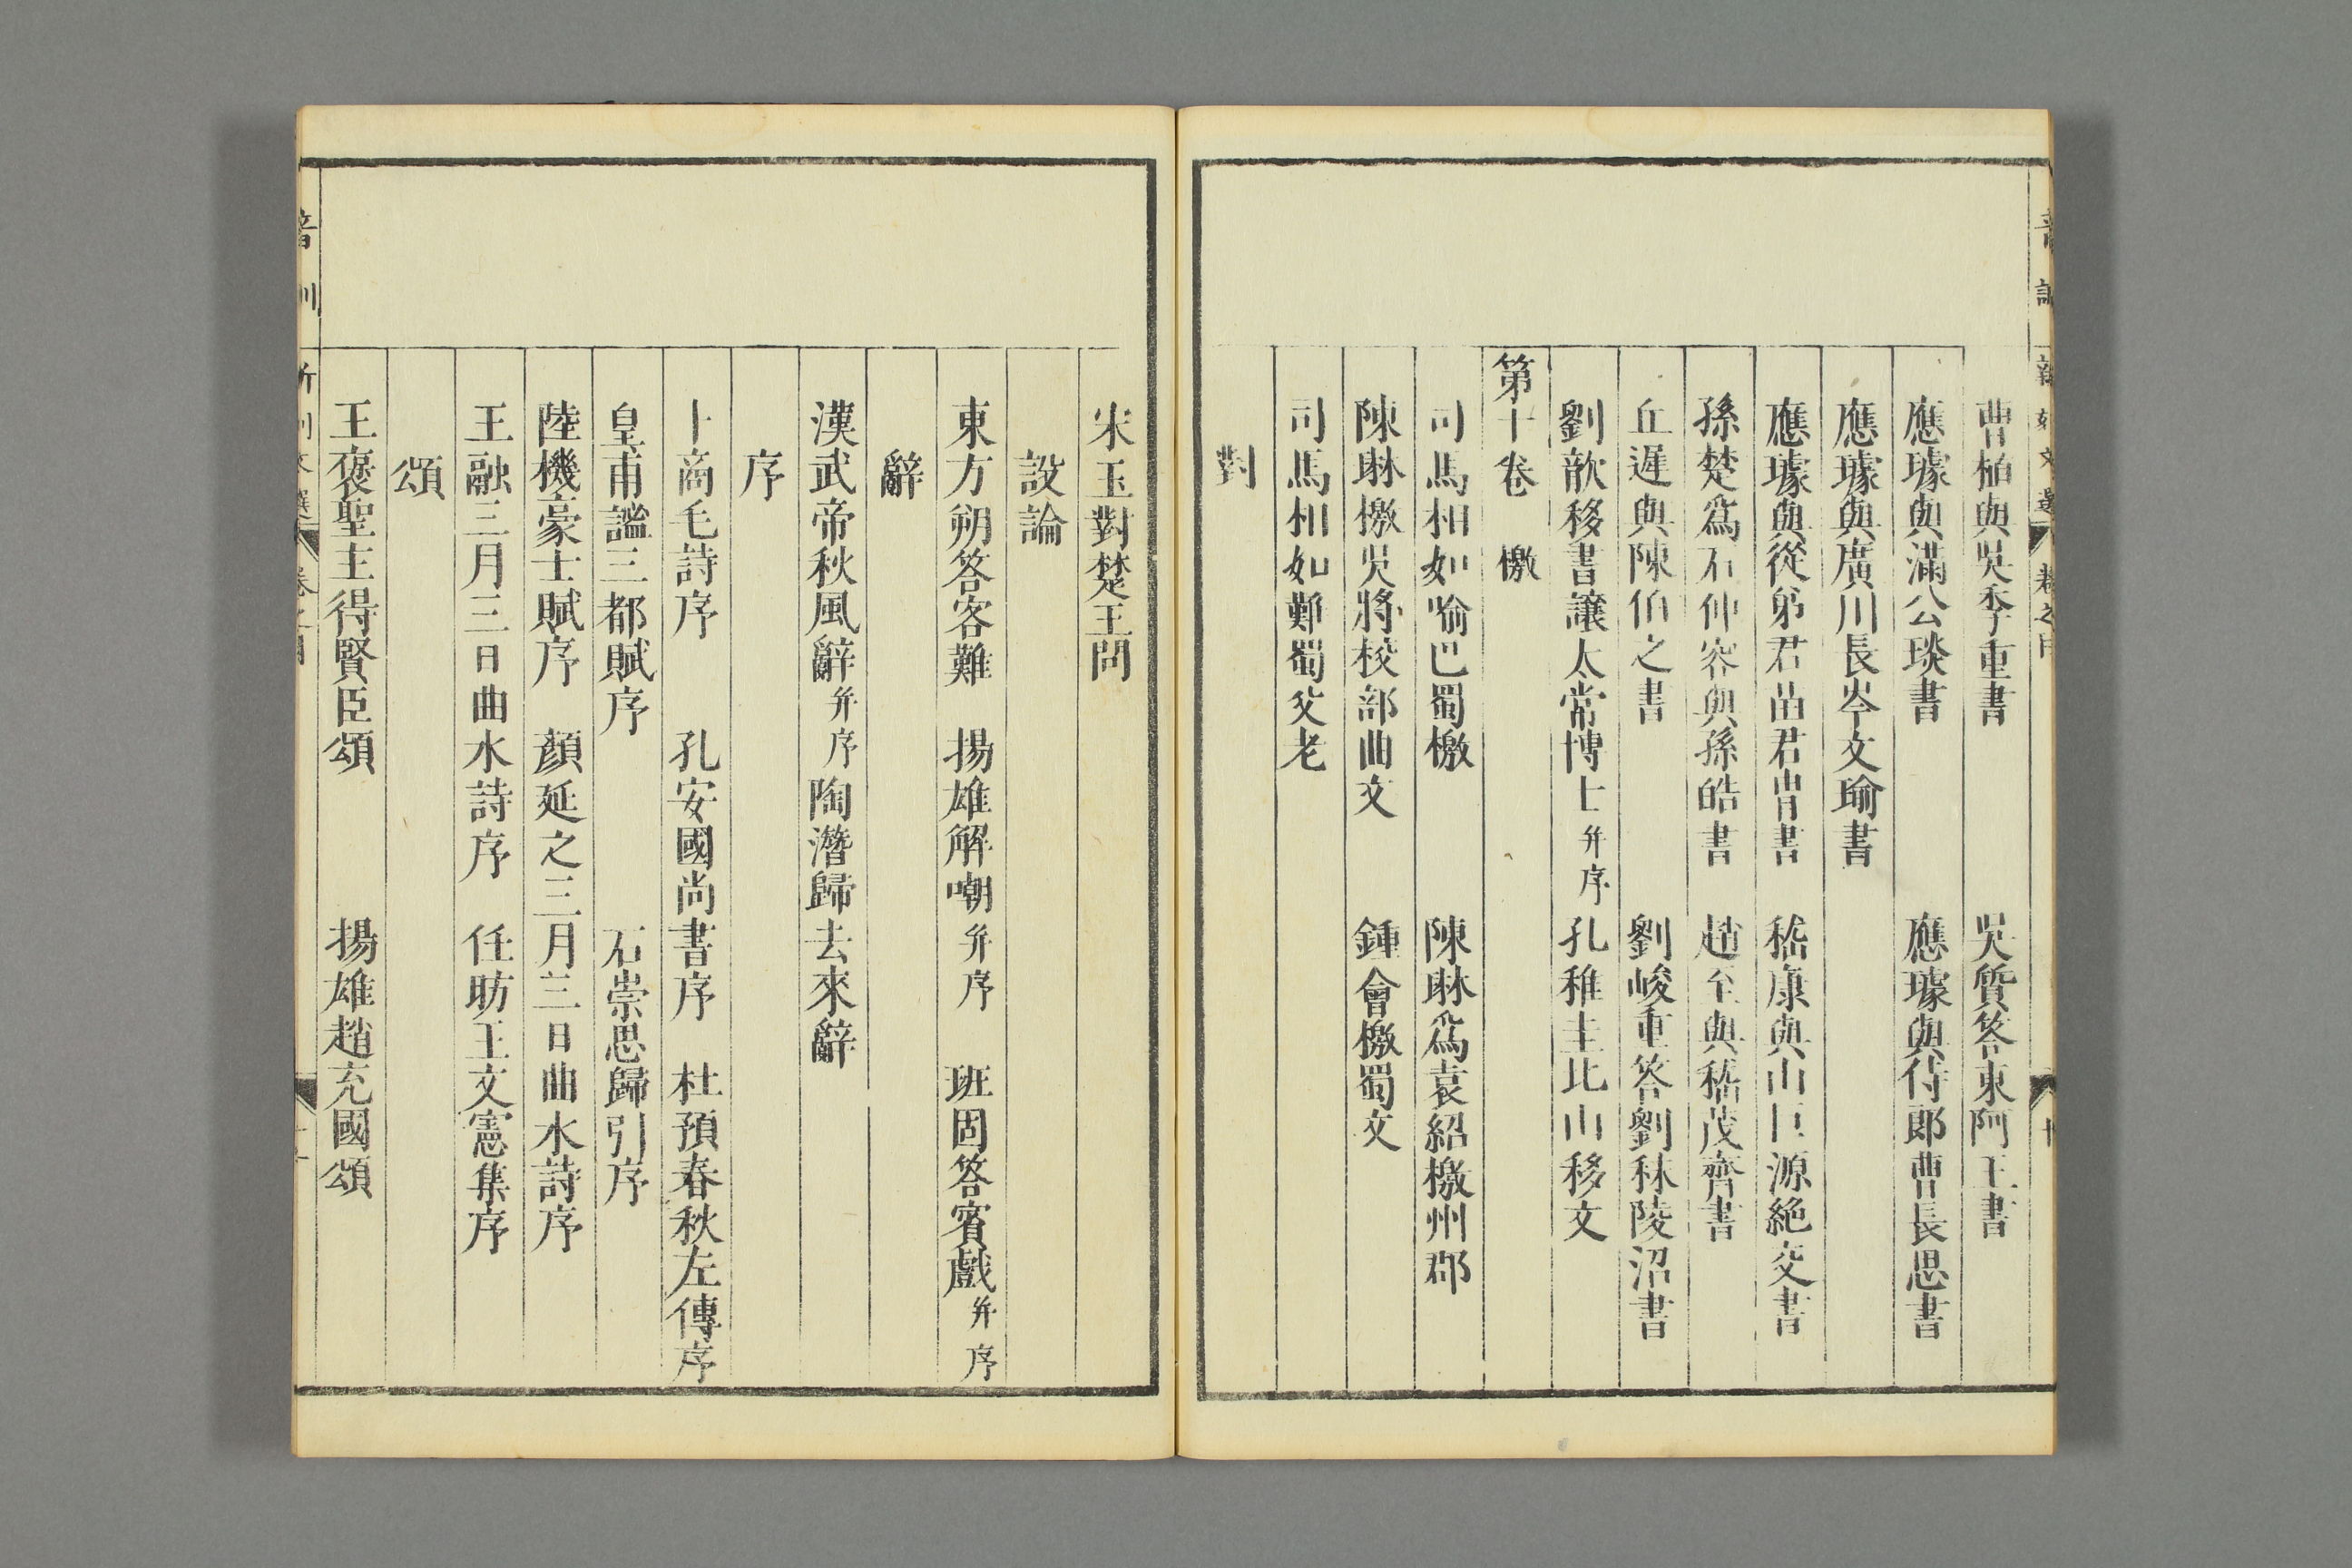 曹植與吳季重書　吳質答東阿王書
應璩與滿公琰書　應璩與侍郎曹長思書
應璩與廣川長岑文瑜書
應璩與從弟君苗君冑書　嵇康與山巨源絕交書
孫楚爲石仲容與孫皓書　趙至與嵇茂齊書
丘遲與陳伯之書　劉峻重答劉秣陵沼書
劉歆移書讓太常博士并序　孔稚圭北山移文
第十卷　檄
司馬相如喻巴蜀檄　陳琳爲袁紹檄州郡
陳琳檄吳將校部曲文　鍾會檄蜀文
司馬相如難蜀父老
對
宋玉對楚王問
設論
東方朔答客難　揚雄解嘲并序　班固答賓戲并序
辭
漢武帝秋風辭并序　陶潛歸去來辭
序
卜商毛詩序　孔安國尚書序　杜預春秋左傳序
皇甫謐三都賦序　石崇思歸引序
陸機豪士賦序　顏延之三月三日曲水詩序
王融三月三日曲水詩序　任昉王文憲集序
頌
王褒聖主得賢臣頌　揚雄趙充國頌